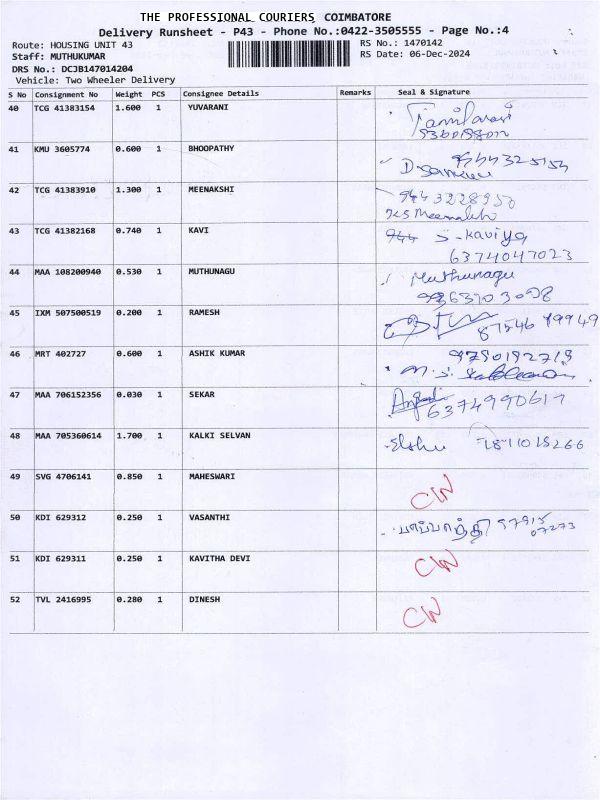 THE PROFESSIONAL COURIERS COIMBATORE
Delivery Runsheet - P43 - Phone No.:0422-3505555 - Page No.:4
Route: HOUSING UNIT 43
RS No.: 1470142
Staff: MUTHUKUMAR
RS Date: 06-Dec-2024
DRS No.: DCJB147014204
Vehicle: Two Wheeler Delivery
S No Consignment No Weight PCS Consignee Details Remarks Seal & Signature
40 TCG 41383154 1.600 1 YUVARANI
41 KMU 3605774 0.600 1 BHOOPATHY
42 TCG 41383910 1.300 1 MEENAKSHI
43 TCG 41382168 0.740 1 KAVI S-Kaviya
6374047023
44 MAA 108200940 0.530 1 MUTHUNAGU Muthunagu
45 IXM 507500519 0.200 1 RAMESH
46 MRT 402727 0.600 1 ASHIK KUMAR
47 MAA 706152356 0.030 1 SEKAR
48 MAA 705360614 1.700 1 KALKI SELVAN
49 SVG 4706141 0.850 1 MAHESWARI
50 KDI 629312 0.250 1 VASANTHI பாப்பாத்தி
07273
51 KDI 629311 0.250 1 KAVITHA DEVI
52 TVL 2416995 0.280 1 DINESH